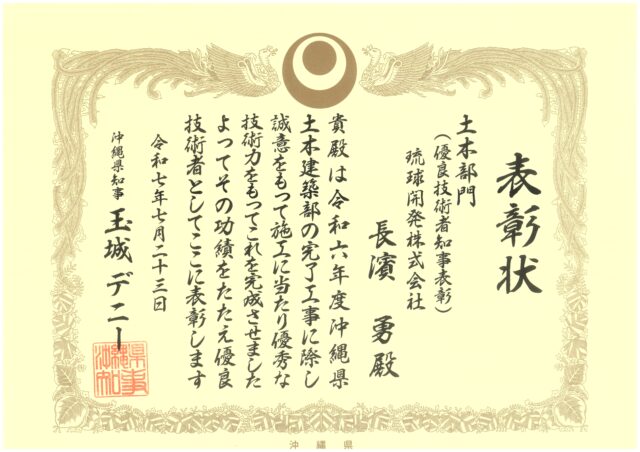 表彰状
土木部門
(優良技術者知事表彰)
琉球開発株式会社
長濱 勇 殿
貴殿は令和六年度沖縄県
土木建築部の完了工事に際し
誠意をもって施工に当たり優秀な
技術力をもってこれを完成させました
よってその功績をたたえ優良
技術者としてここに表彰します
令和七年七月二十三日
沖縄県知事 玉城 デニー
沖縄県